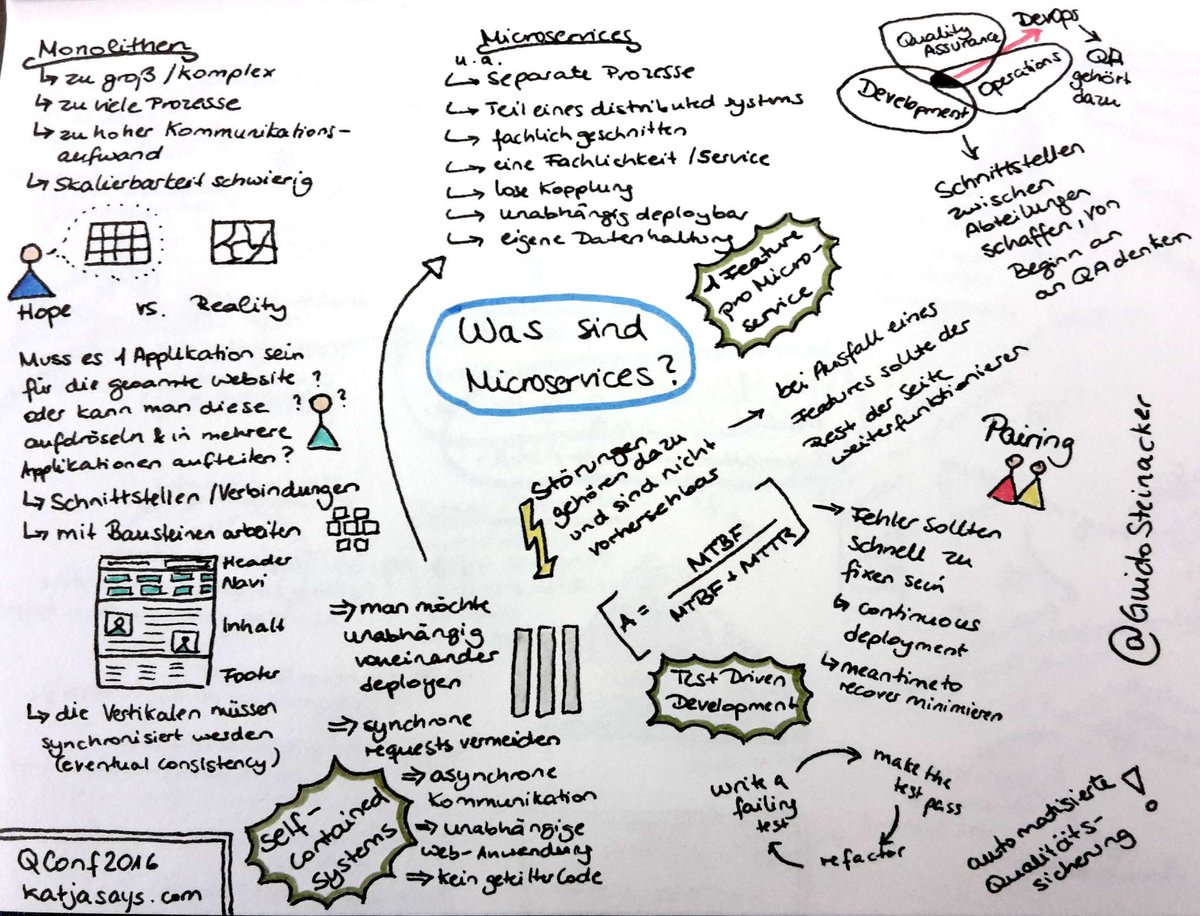 Monolithen
↳ zu groß / komplex
↳ zu viele Prozesse
↳ zu hoher Kommunikations-
aufwand
↳ Skalierbarkeit schwierig
Hope vs. Reality
Muss es 1 Applikation sein
für die gesamte Website?
oder kann man diese ? ?
aufdröseln & in mehrere
Applikationen aufteilen?
↳ Schnittstellen / Verbindungen
↳ mit Bausteinen arbeiten
Header
Navi
Inhalt
Footer
↳ die Vertikalen müssen
synchronisiert werden
(eventual consistency)
QConf2016
katjasays.com
Microservices
u.a.
↳ separate Prozesse
↳ Teil eines distributed systems
↳ fachlich geschnitten
↳ eine Fachlichkeit / Service
↳ lose Kopplung
↳ unabhängig deploybar
↳ eigene Datenhaltung
1 Feature
pro Micro-
service
Was sind
Microservices?
⇒ man möchte
unabhängig
voneinander
deployen
⇒ synchrone
requests vermeiden
Self-
Contained
Systems
⇒ asynchrone
Kommunikation
⇒ unabhängige
Web-Anwendung
⇒ kein geteilter Code
Quality
Assurance
Development
Operations
DevOps
→ QA
gehört
dazu
→ Schnittstellen
zwischen
Abteilungen
schaffen, von
Beginn an
an QA denken
Störungen
gehören dazu
und sind nicht
vorhersehbar
→ bei Ausfall eines
Features sollte der
Rest der Seite
weiterfunktionieren
[A = MTBF / MTBF + MTTR]
→ Fehler sollten
schnell zu
fixen sein
↳ continuous
deployment
↳ meantime to
recover minimieren
Pairing
@GuidoSteinacker
Test Driven
Development
write a
failing
test
make the
test pass
refactor
automatisierte
Qualitäts-
sicherung !